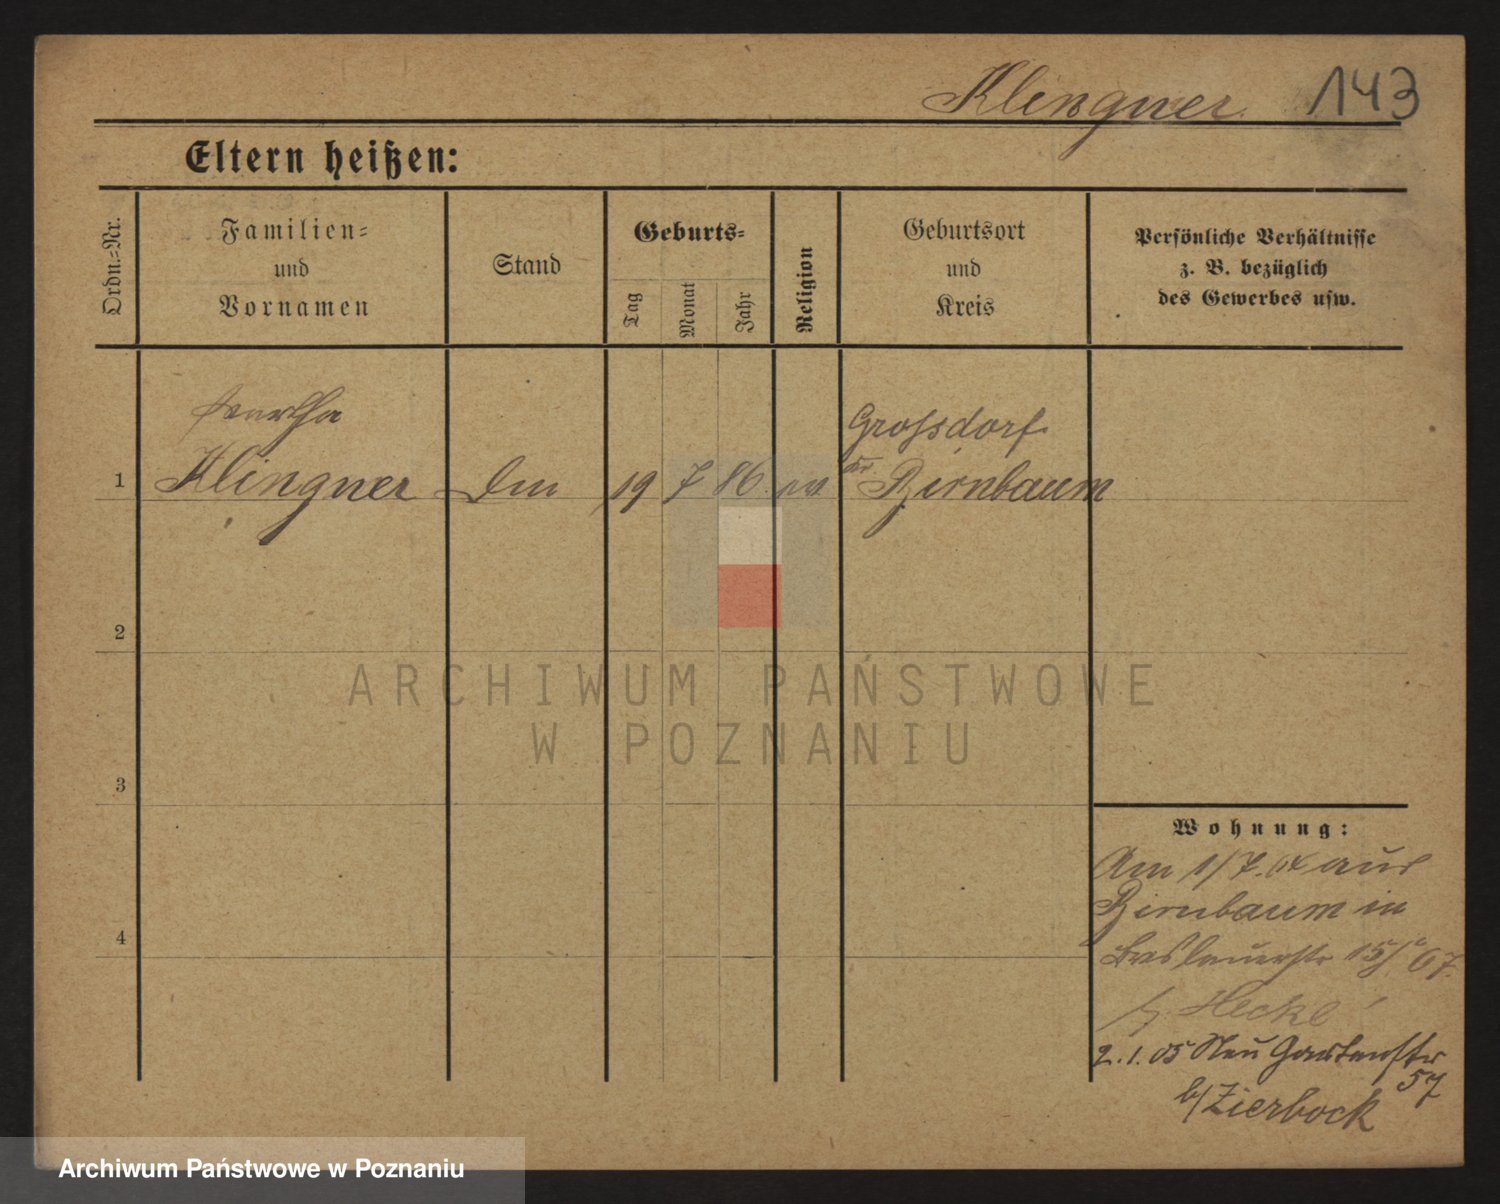 Klingner 143
Eltern heißen:
Ordn.=Nr.
Familien=
und
Vornamen
Stand
Geburts=
Tag
Monat
Jahr
Religion
Geburtsort
und
Kreis
Persönliche Verhältnisse
z. B. bezüglich
des Gewerbes usw.
Grossdorf
1 Klingner 19 7 86 Kr. Birnbaum
2
ARCHIWUM PAŃSTWOWE
W POZNANIU
3
Wohnung:
Am 1/7. 04 aus
Birnbaum in
4
Heckel
2. 1. 05 Neu Gartenstr
57
b/ Zierbock
Archiwum Państwowe w Poznaniu